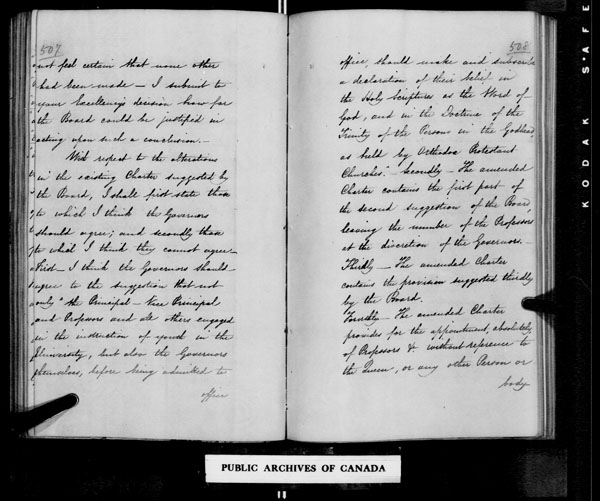 507
not feel certain that none other
had been made — I submit to
your Excellency's decision how far
the Board could be justified in
acting upon such a conclusion. —
With respect to the alterations
in the existing Charter suggested by
the Board, I shall first state those
to which I think the Governors
should agree; and secondly those
to which I think they cannot agree —
First — I think the Governors should
agree to the suggestion that not
only "the Principal — Vice Principal
and Professors and all others engaged
in the instruction of youth in the
University, but also the Governors
themselves, before being admitted to
office
508
office, should make and subscribe
a declaration of their belief in
the Holy Scriptures as the Word of
God, and in the Doctrine of the
Trinity of the Persons in the Godhead,
as held by Orthodox Protestant
Churches." Secondly — The amended
Charter contains the first part of
the second suggestion of the Board,
leaving the number of the Professors
at the discretion of the Governors. —
Thirdly — The amended Charter
contains the provision suggested thirdly
by the Board.
Fourthly — The amended Charter
provides for the appointment, absolutely,
of Professors &c. without reference to
the Queen, or any other Person or
body
PUBLIC ARCHIVES OF CANADA
KODAK SAFE